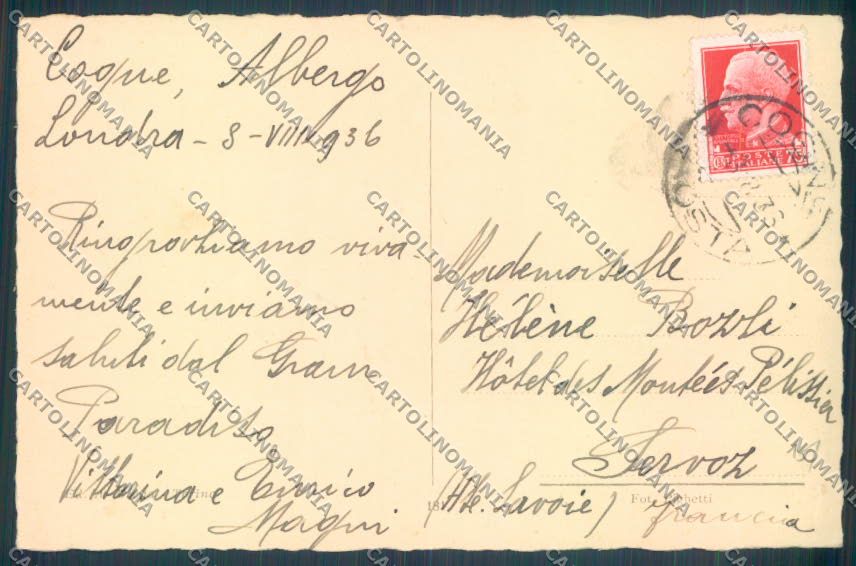 Cogne, Albergo
Londra - 8 - VIII 1936
Ringraziamo viva-
mente e inviamo
saluti dal Gran
Paradiso
Vittorina e Enrico
Magni
Mademoiselle
Hélène Bozli
Hôtel des Montées Pélissier
Servoz
(Hte. Savoie)
Francia
POSTE
ITALIANE
COGNE
AOSTA
Fot.
CARTOLINOMANIA